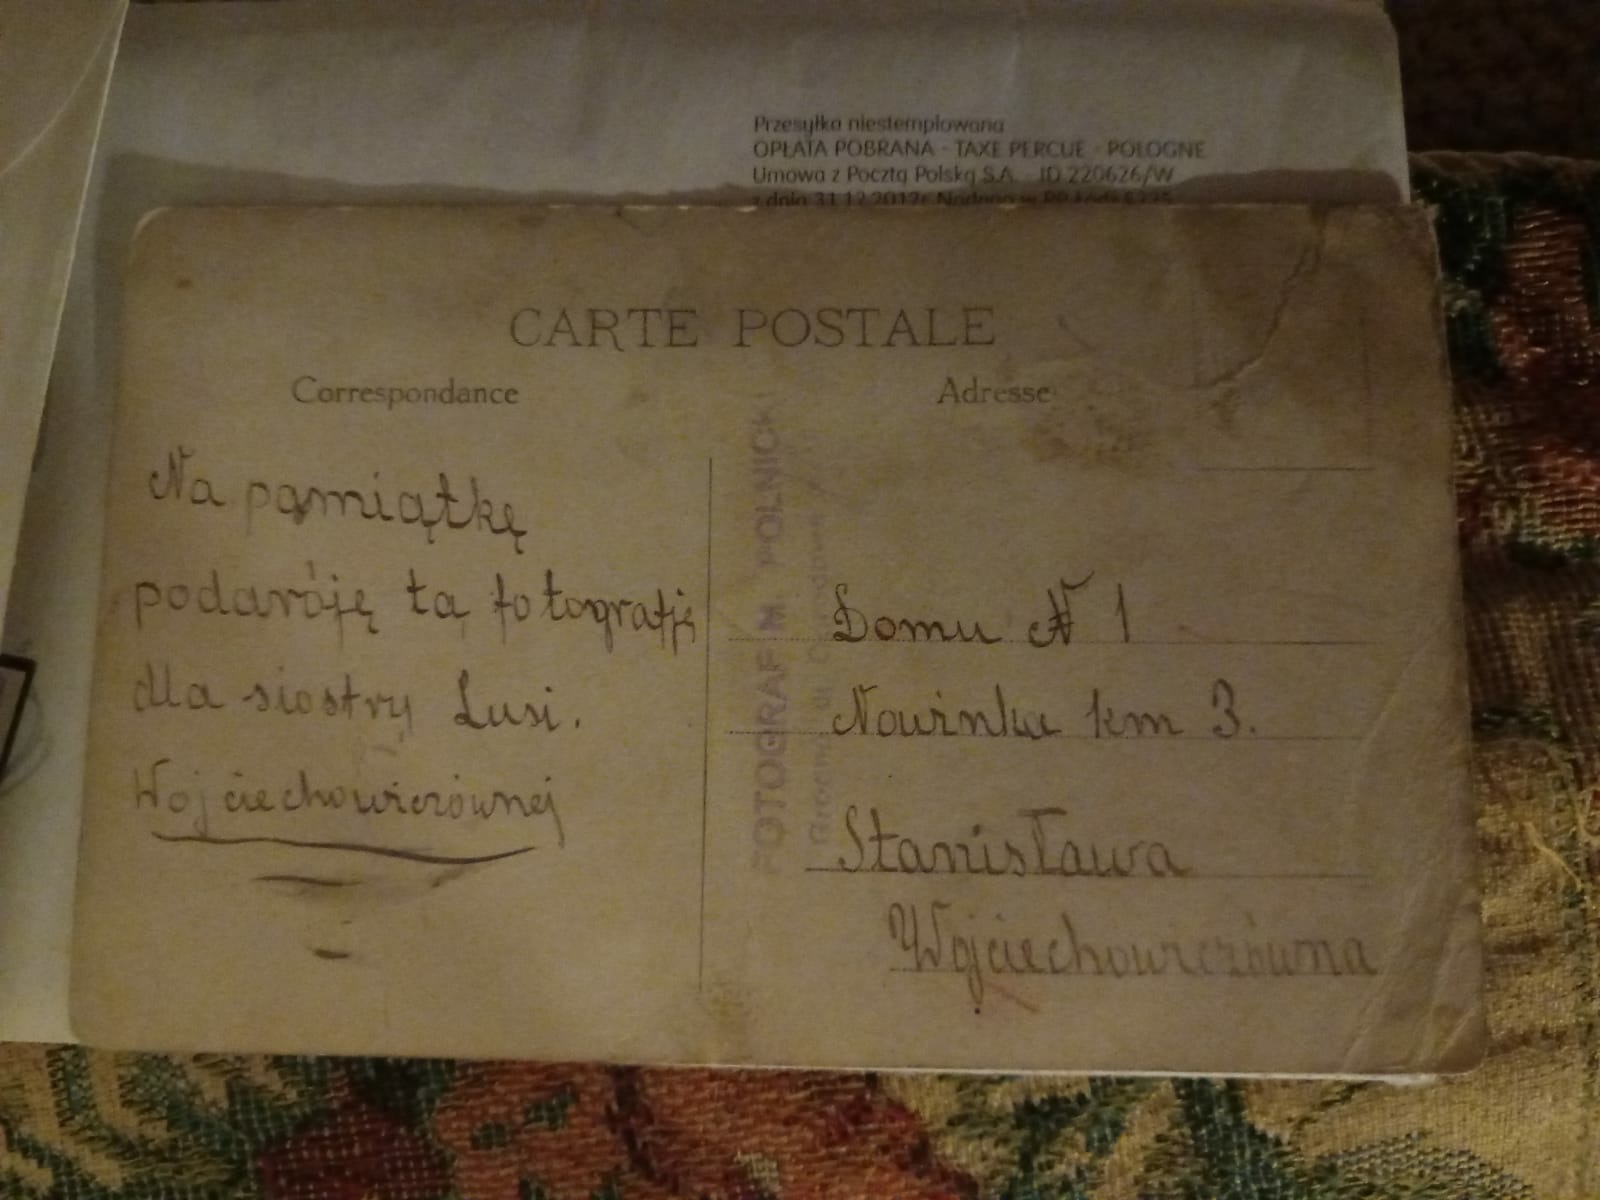 Przesyłka niestemplowana
OPŁATA POBRANA - TAXE PERCUE - POLOGNE
Umowa z Pocztą Polską S.A. ID 220626/W
z dnia 31.12.2012r. Nadano w
CARTE POSTALE
Correspondance
Adresse
Na pamiątkę
podaróję tą fotografję
dla siostry Lusi.
Wojciechowiczównej
FOTOGRAF M. POLNICKI
Domu № 1
Nowinka km 3.
Stanisława
Wojciechowiczówna